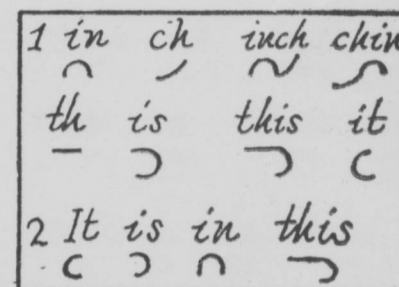 1 in ch inch chin
th is this it
2 It is in this